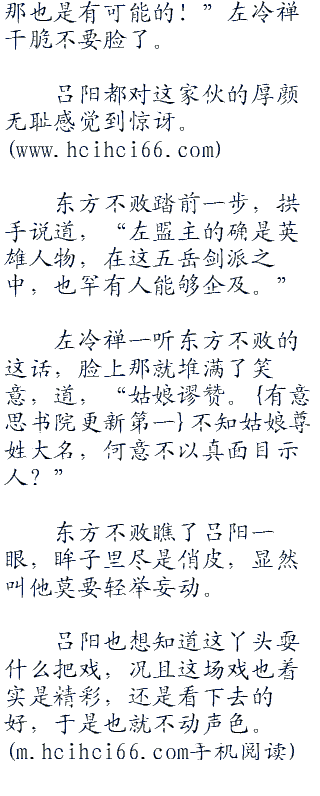 那也是有可能的！”左冷禅
干脆不要脸了。
吕阳都对这家伙的厚颜
无耻感觉到惊讶。
(www.hcihci66.com)
东方不败踏前一步，拱
手说道，“左盟主的确是英
雄人物，在这五岳剑派之
中，也罕有人能够企及。”
左冷禅一听东方不败的
这话，脸上那就堆满了笑
意，道，“姑娘谬赞。{有意
思书院更新第一}不知姑娘尊
姓大名，何意不以真面目示
人？”
东方不败瞧了吕阳一
眼，眸子里尽是俏皮，显然
叫他莫要轻举妄动。
吕阳也想知道这丫头耍
什么把戏，况且这场戏也着
实是精彩，还是看下去的
好，于是也就不动声色。
(m.hcihci66.com手机阅读)